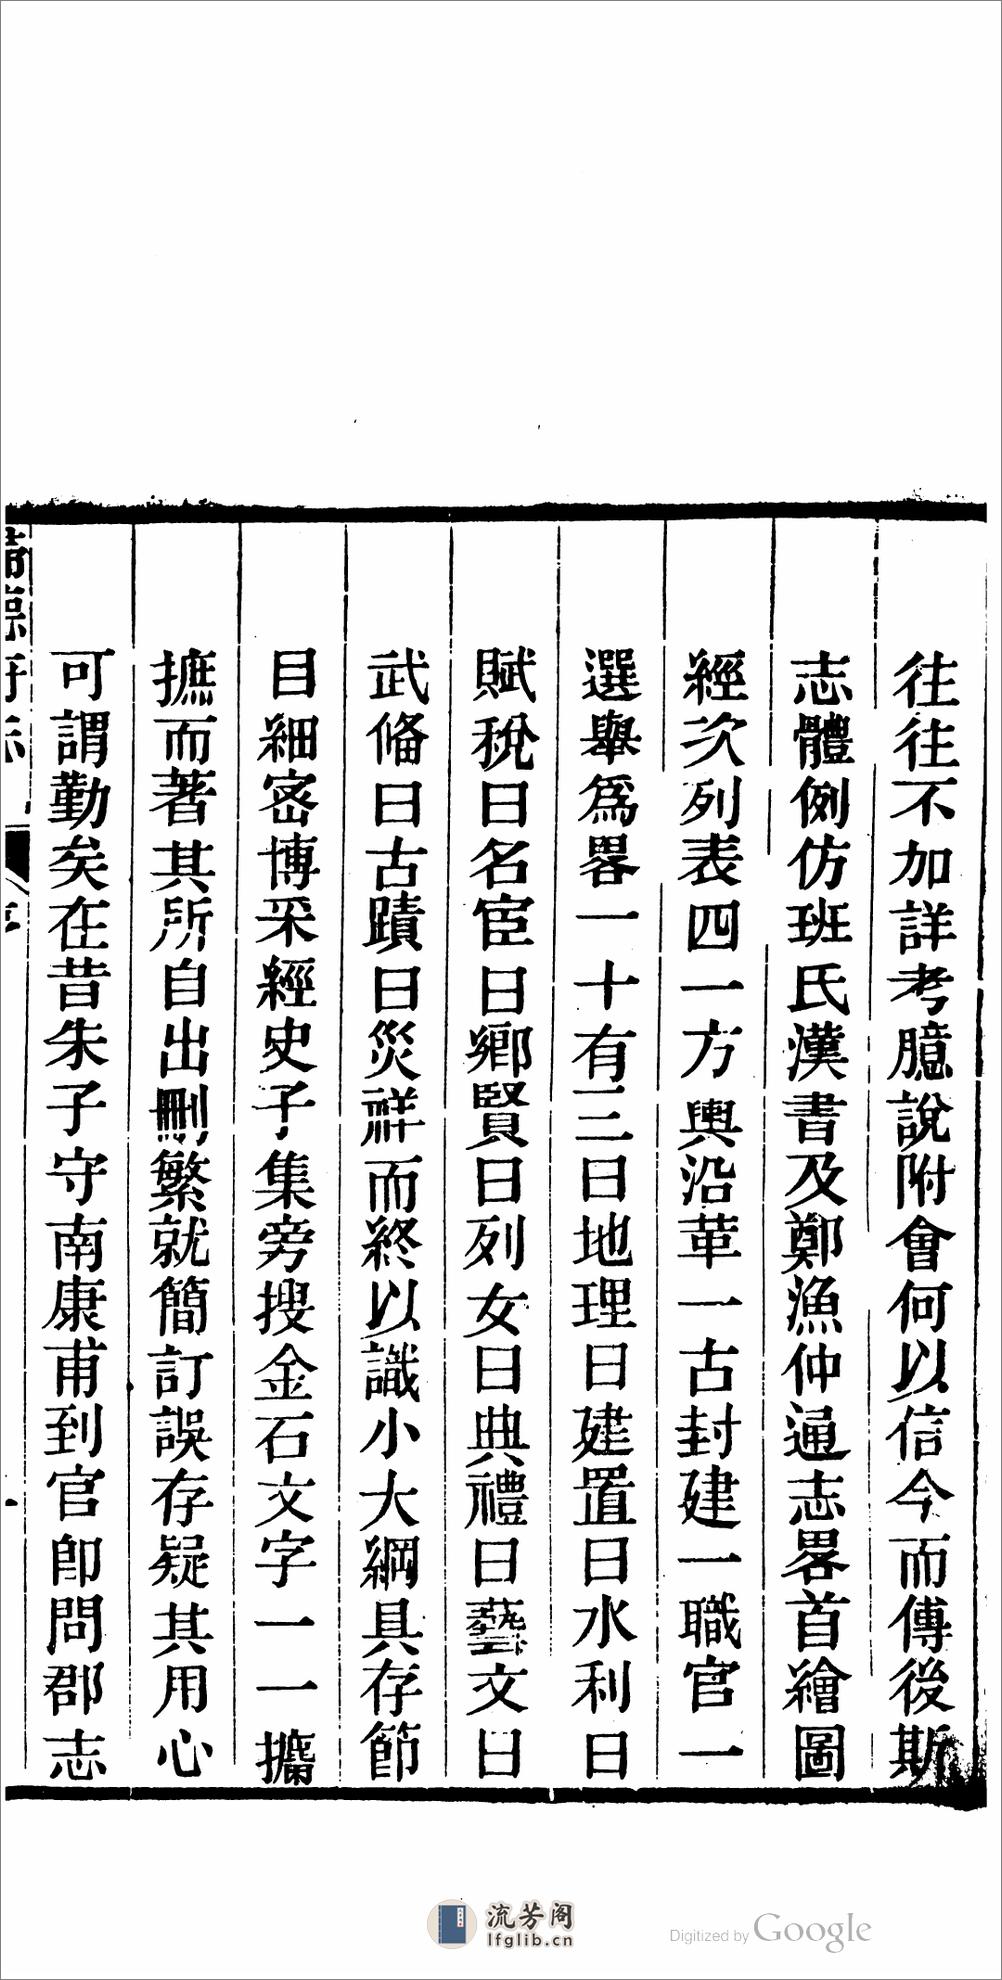 往往不加詳考臆說附會何以信今而傳後斯
志體例仿班氏漢書及鄭漁仲通志畧首繪圖
經次列表四一方輿沿革一古封建一職官一
選舉爲畧一十有三曰地理曰建置曰水利曰
賦稅曰名宦曰鄉賢曰列女曰典禮曰藝文曰
武備曰古蹟曰災祥而終以識小大綱具存節
目細密博采經史子集旁搜金石文字一一攟
摭而著其所自出刪繁就簡訂誤存疑其用心
可謂勤矣在昔朱子守南康甫到官卽問郡志
序
流芳阁
lfglib.cn
Digitized by Google